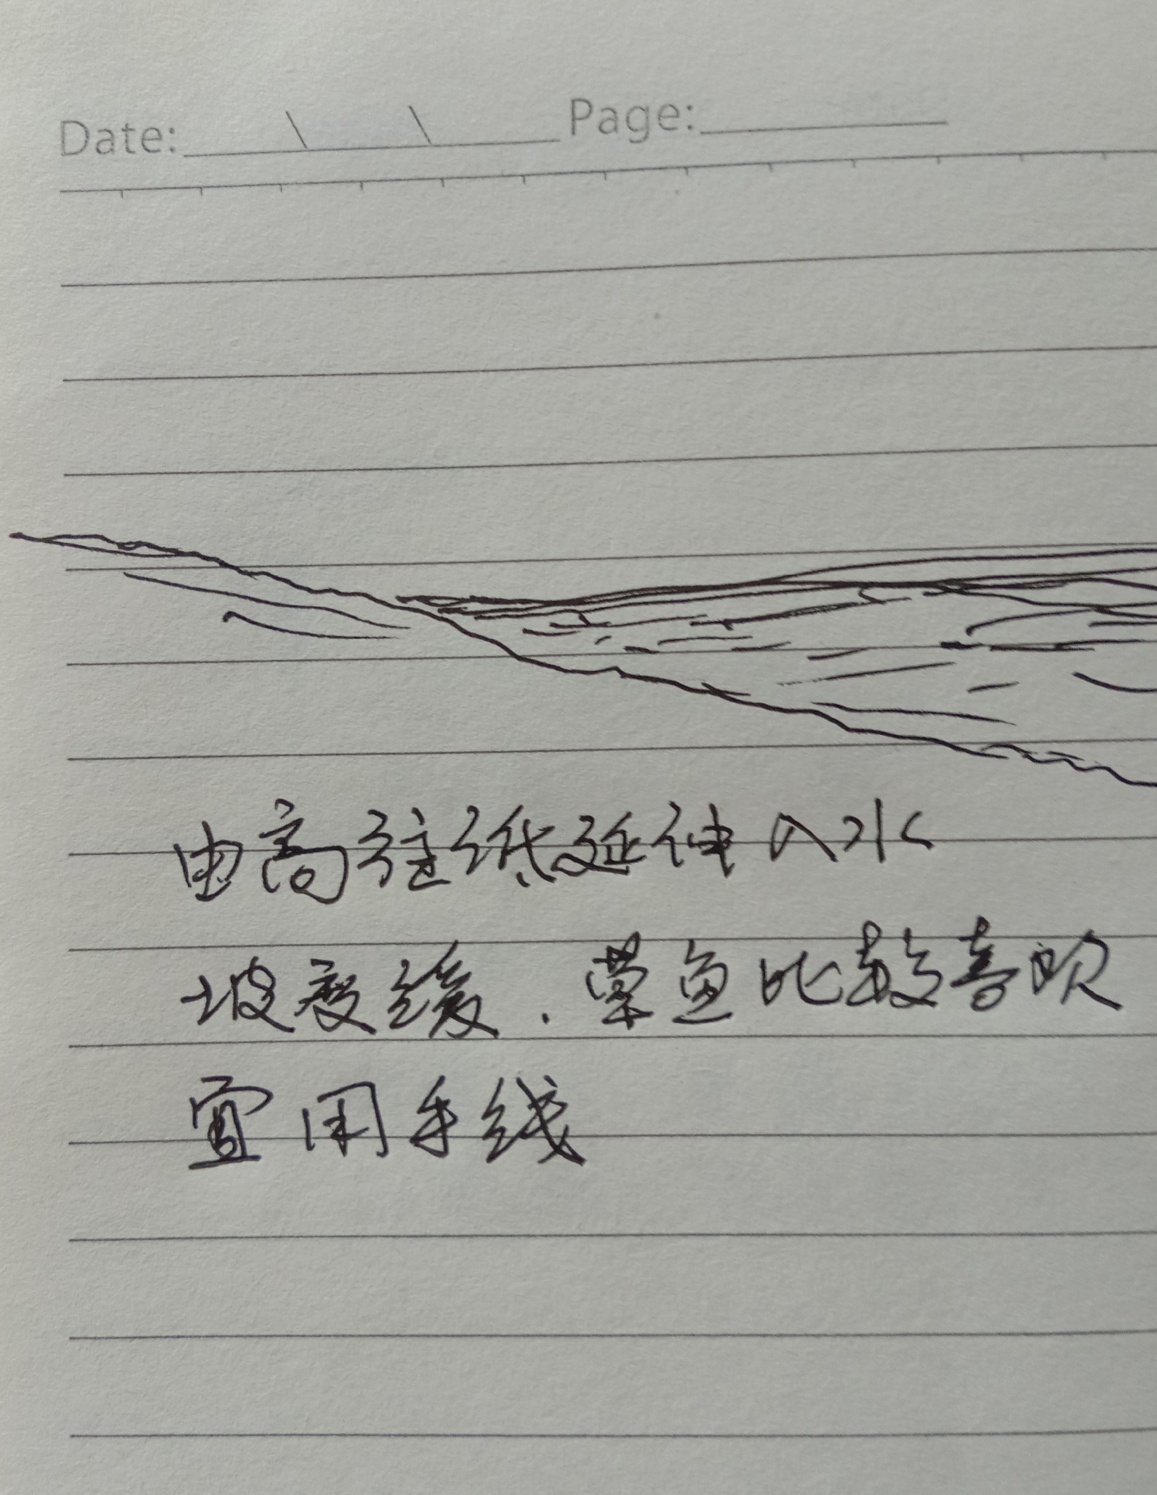 Date: \ \ Page:
由高往低延伸入水
坡度缓.草鱼比较喜欢
宜用手线